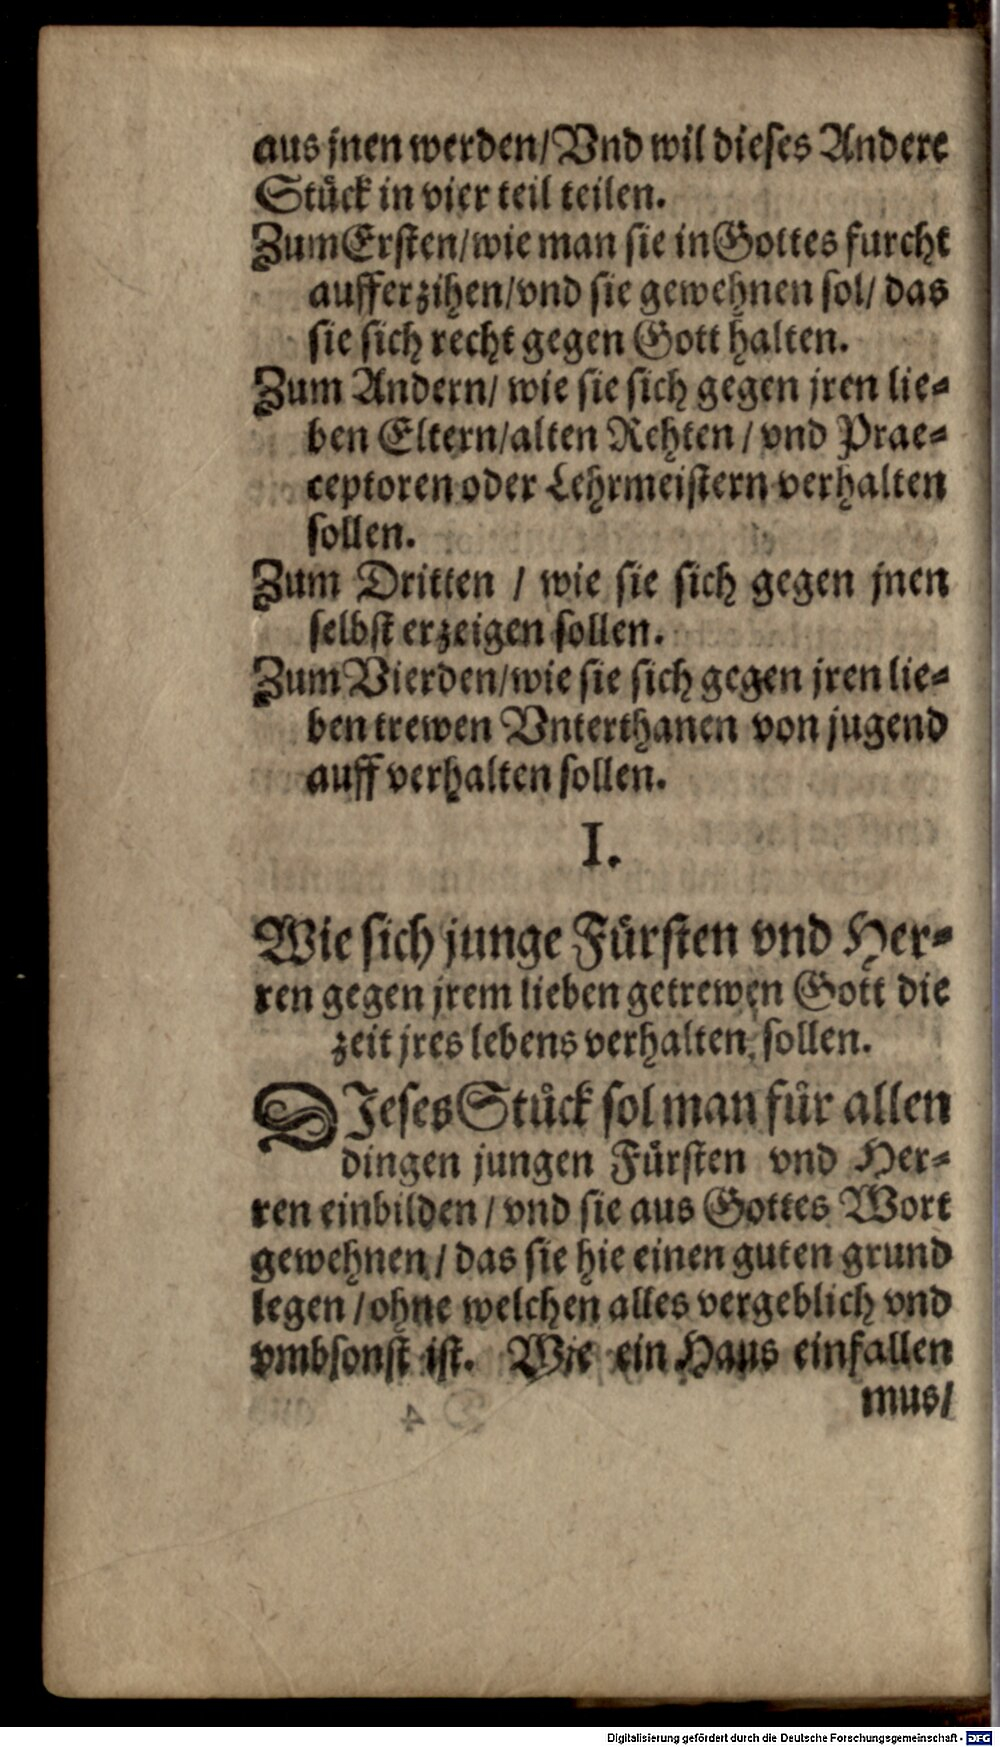 aus jnen werden/Vnd wil dieses Andere
Stück in vier teil teilen.
Zum Ersten/wie man sie in Gottes furcht
aufferzihen/vnd sie gewehnen sol/ das
sie sich recht gegen Gott halten.
Zum Andern/ wie sie sich gegen jren lie-
ben Eltern/alten Rehten / vnd Prae-
ceptoren oder Lehrmeistern verhalten
sollen.
Zum Dritten / wie sie sich gegen jnen
selbst erzeigen sollen.
Zum Vierden/wie sie sich gegen jren lie-
ben trewen Vnterthanen von jugend
auff verhalten sollen.
I.
Wie sich junge Fürsten vnd Her-
ren gegen jrem lieben getrewen Gott die
zeit jres lebens verhalten sollen.
DJeses Stück sol man für allen
dingen jungen Fürsten vnd Her-
ren einbilden / vnd sie aus Gottes Wort
gewehnen / das sie hie einen guten grund
legen / ohne welchen alles vergeblich vnd
vmbsonst ist. Wie ein Haus einfallen
mus/
Digitalisierung gefördert durch die Deutsche Forschungsgemeinschaft - DFG